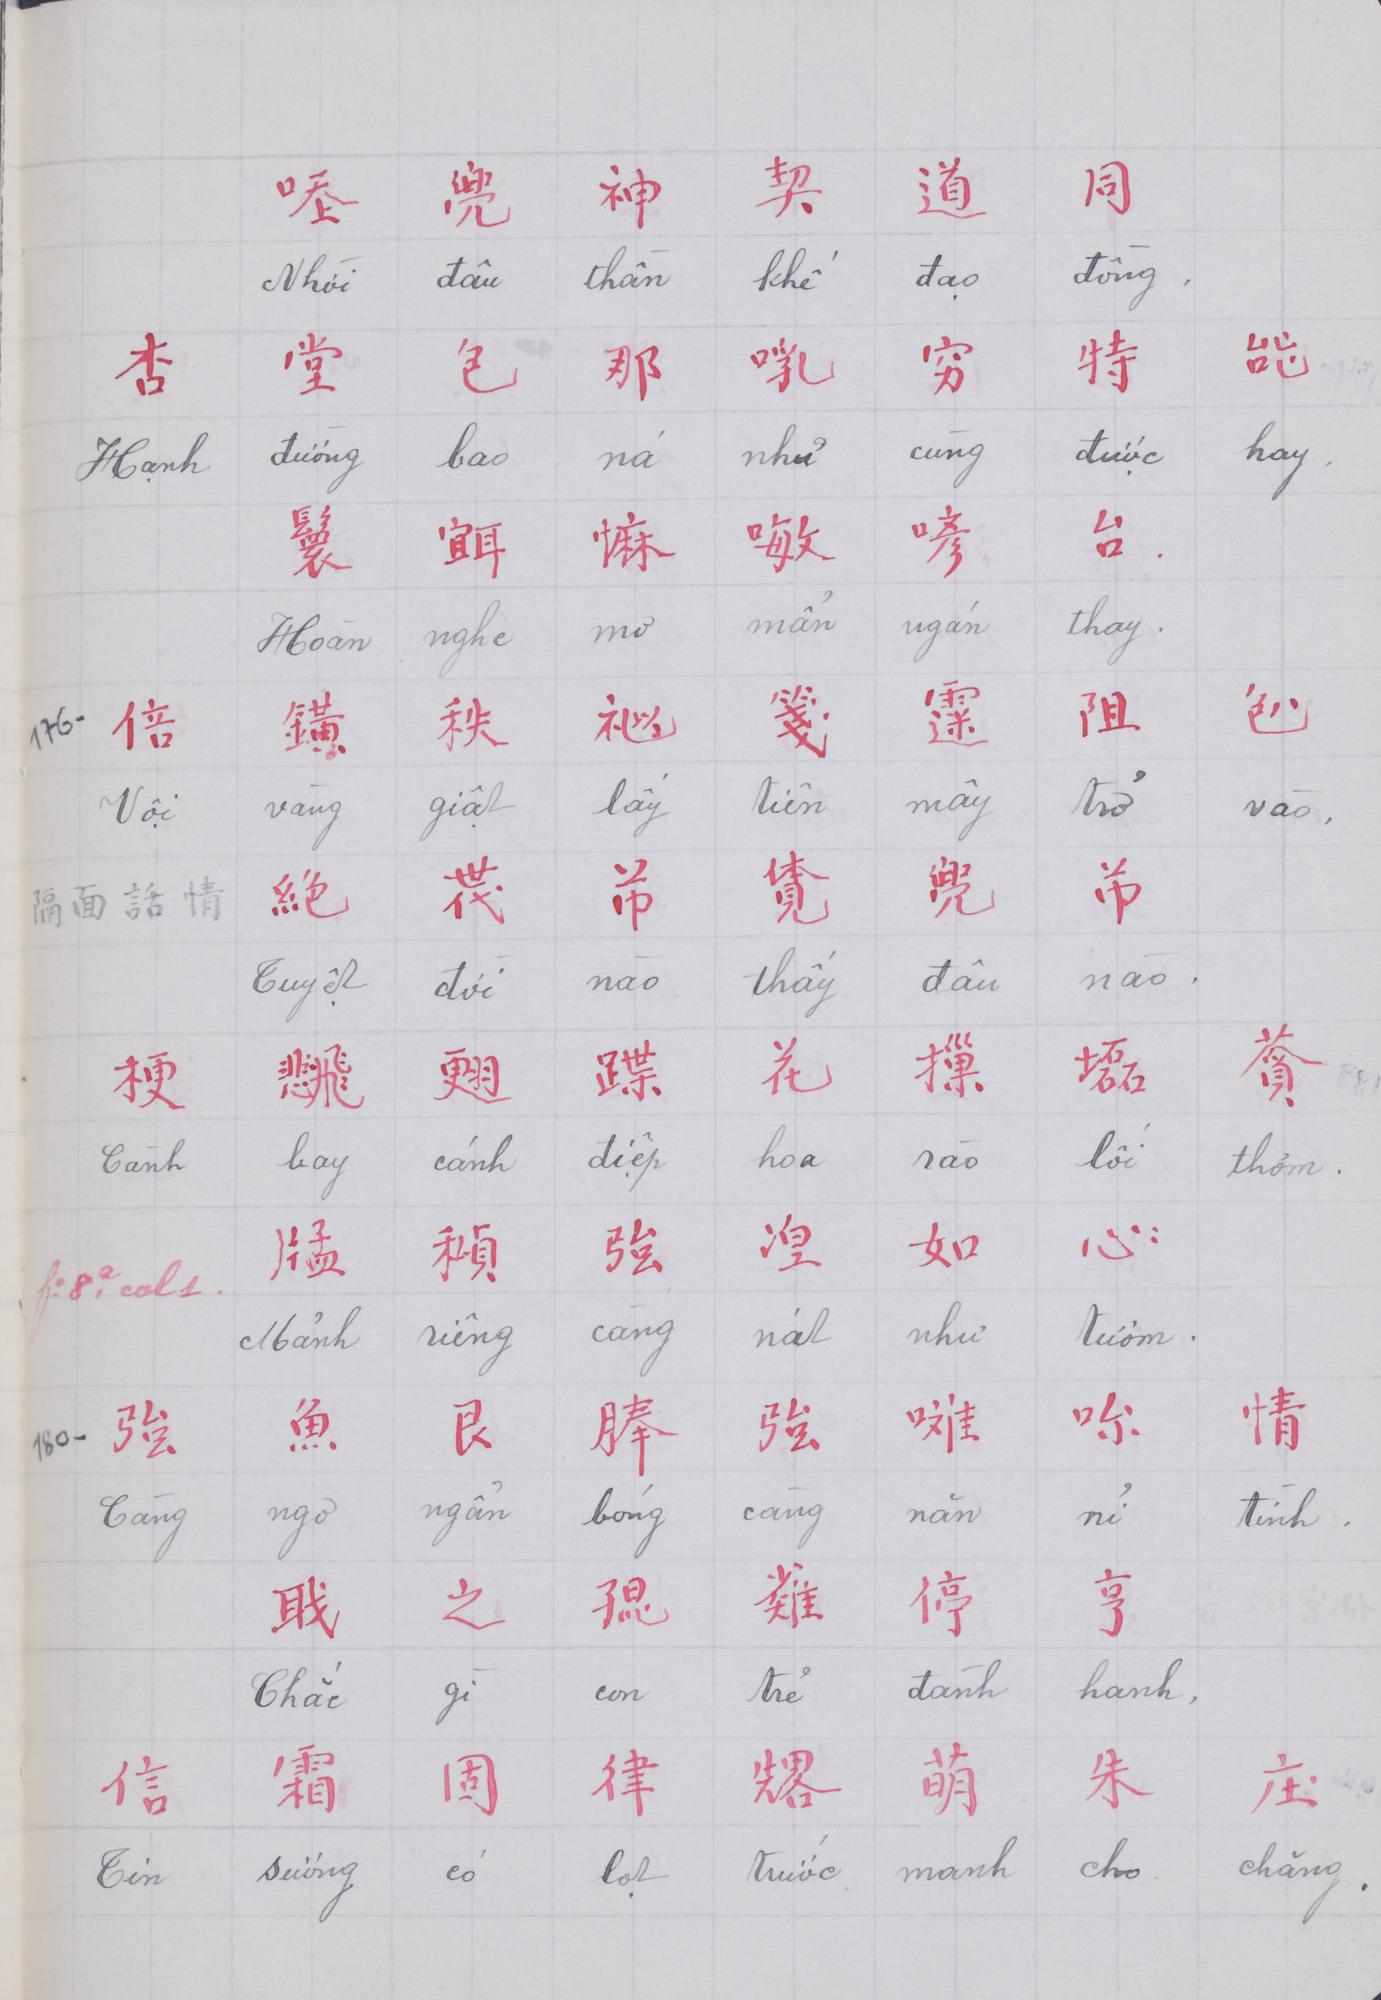 𠰃 兜 神 契 道 同
Nhời đâu thần khế đạo đồng,
杏 堂 包 那 𠹌 穷 特 咍
Hạnh đường bao ná nhử cũng được hay.
鬟 𦖑 𢠩 敏 喭 台.
Hoàn nghe mơ mẩn ngán thay.
176- 倍 鐄 秩 𥙩 箋 𩄲 阻 𠓨
Vội vàng giật lấy tiên mây trở vào,
隔面話情 絕 𦰟 芇 𧡊 兜 芇
Tuyệt đới nào thấy đâu nào.
梗 𢒎 𦑃 蝶 花 樔 磊 𦹳
Cành bay cánh điệp hoa rào lối thơm.
f: 8ª. col 1. 𤗲 𥢆 強 湼 如 心
Mảnh riêng càng nát như tươm.
180- 強 魚 艮 俸 強 𠹌 呢 情
Càng ngơ ngẩn bóng càng năn nỉ tình.
聀 之 𡥵 𥘷 停 亨
Chắc gì con trẻ đành hanh,
信 霜 固 律 𠓀 萌 朱 庄
Tin sương có lọt trước manh cho chăng.